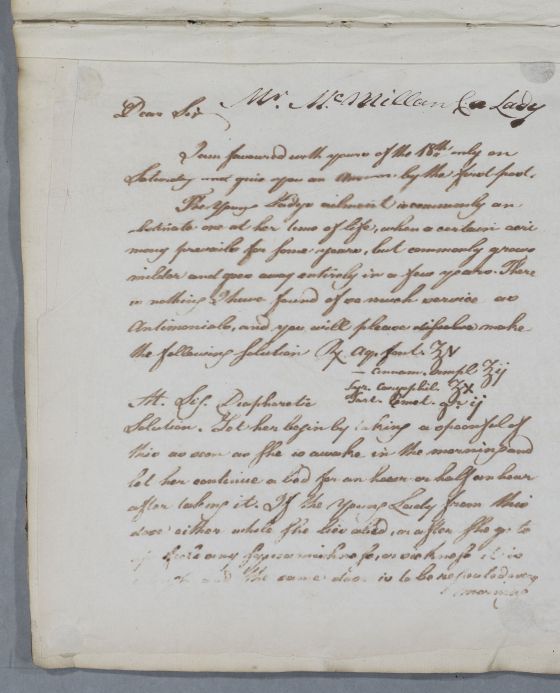 Mr. McMillan for a Lady
Dear Sir
I am favoured with yours of the 18th only on
Saturday and give you an answer by the first post.
The Young Ladys ailment is commonly an
obstinate one at her time of life, when a certain acri
mony prevails for some years, but commonly grows
milder and goes away entirely in a few years. There
is nothing I have found of so much service as
Antimonials, and you will please dissolve make
the following Solution ℞ Aq. font. ℥v
— Cinnam. simpl. ℥ij
Syr. Caryophil. ℥x
Tart. Emet. gr ij
M. Sig. Diaphoretic
Solution. Let her begin by taking a spoonful of
this as soon as She is awake in the morning and
let her continue a bed for an hour or half an hour
after taking it. If the Young Lady from this
dose either while She lies abed, or after She gets
up feels any squeamishness, or sickness it is
and the same dose is to be repeated every
morning